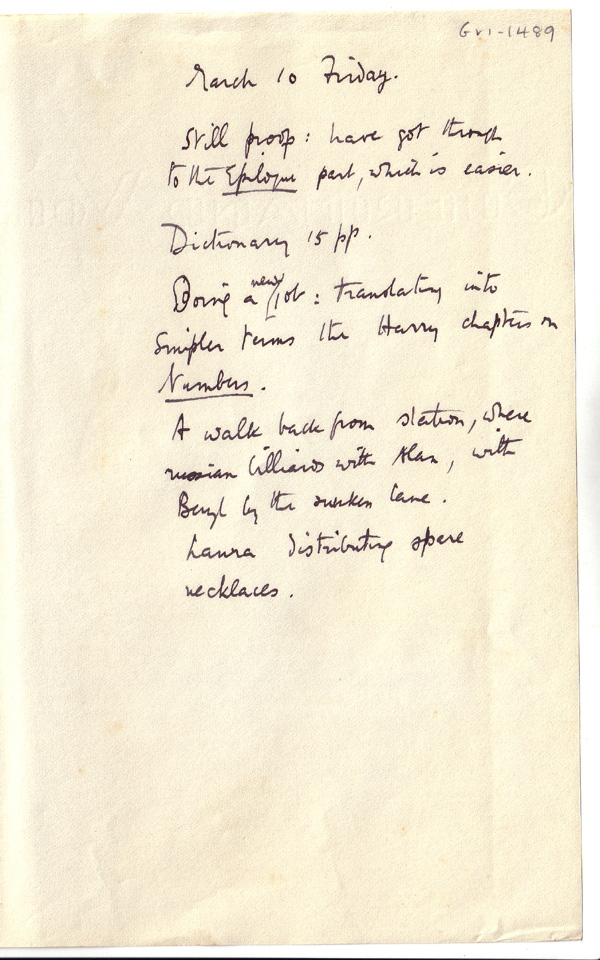 Gri-1489
March 10 Friday.
Still proofs: have got through
to the Epilogue part, which is easier.
Dictionary 15 pp.
Doing a new job: translating into
simpler terms the Harry chapters on
Numbers.
A walk back from station, where
russian billiards with Alan, with
Beryl by the sunken lane.
Laura distributing spare
necklaces.